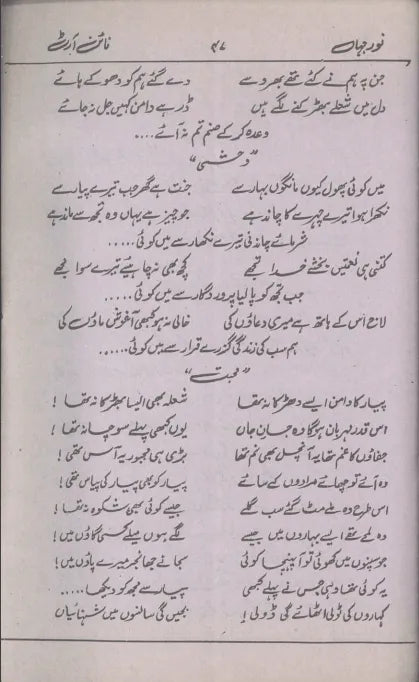 نورجہاں ۴۷ فائن آرٹ
جن پہ ہم نے کئے تھے بھروسے دے گئے ہم کو دھوکے ہائے
دل میں شعلے بھڑکنے لگے ہیں ڈر ہے دامن کہیں جل نہ جائے
وعدہ کر کے صنم تم نہ آئے ....
"دشمن"
میں کوئی پھول کیوں مانگوں بہار سے جنت ہے گھر جب تیرے پیار سے
نکھرا ہوا تیرے چہرے کا چاند ہے جو چیز ہے یہاں وہ تجھ سے ماند ہے
شرمائے چاندنی تیرے نکھار سے میں کوئی .....
کتنی ہی نعمتیں بخشے خدا تجھے کچھ بھی نہ چاہیئے تیرے سوا مجھے
جب تجھ کو پا لیا پروردگار سے میں کوئی .....
لاج اس کے ہاتھ ہے میری دعاؤں کی خالی نہ ہو کبھی آغوش ماؤں کی
ہم سب کی زندگی گزرے قرار سے میں کوئی .....
"محبت"
پیار کا دامن ایسے دھڑکا نہ تھا شعلہ بھی ایسا بھڑکا نہ تھا !
اس قدر مہربان ہوگا وہ جان جاں یوں کبھی پہلے سوچا نہ تھا !
جفاؤں کا غم تھا یہ آنچل بھی نم تھا بڑی ہی مجبور یہ آس تھی !
وہ آئے تو چھائے مرادوں کے سائے پیار کو بھی پیار کی پیاس تھی !
اس طرح وہ ملے مٹ گئے سب گلے جیسے کوئی بھی شکوہ نہ تھا !
وہ لمحے تھے ایسے بہاروں میں جیسے لگے ہوں میلے کسی گاؤں میں !
جو سپنوں میں کھوئی تو آ پہنچا کوئی سجانے جھانجر میرے پاؤں میں !
یہ کوئی تھا وہی جس نے پہلے کبھی پیار سے مجھ کو دیکھا .....
کہاروں کی ٹولی اٹھائے گی ڈولی ! بجیں گی سانسوں میں شہنائیاں